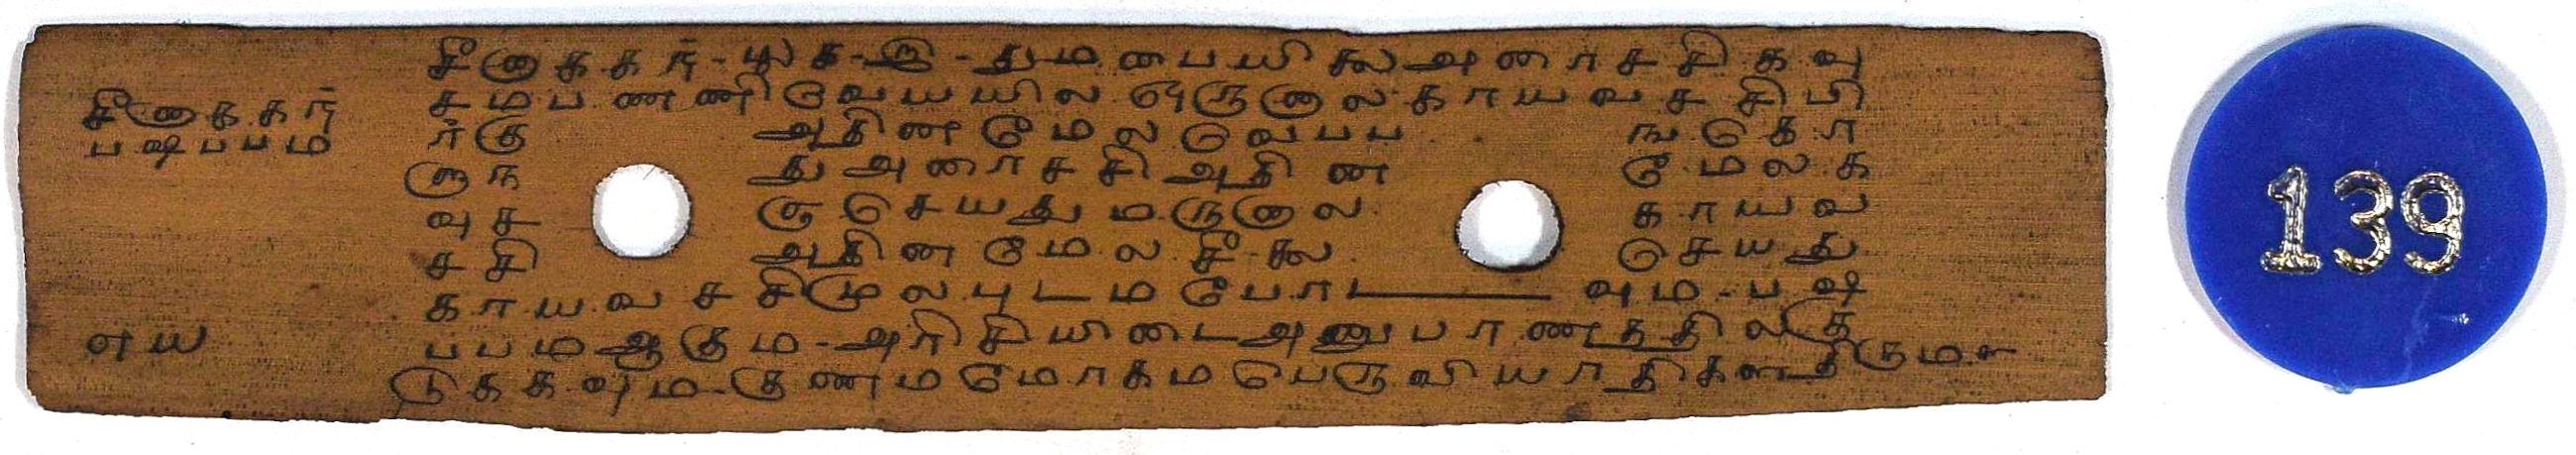 சீனாககர
பஷபபம
எய
சீனாககர - பு க - ரு - துமபைபயிலஅரைசசிகவு
சமபணணிவேயயில ஒருநாலகாயவசசிபி
ரகு அதினமேலவெபப ஙகொ
ருந துஅரைசசிஅதின மேலக
வுச குசெயதுமருநால காயவ
சசி அதினமேலசீல செயது
காயவசசிமூலபுடமபோட வும - பஷ
பபமஆகும - அரிசியிடைஅனுபாணததிலத
டுககவும - குணமமோகமபெருவியாதிகளதிருமள
139